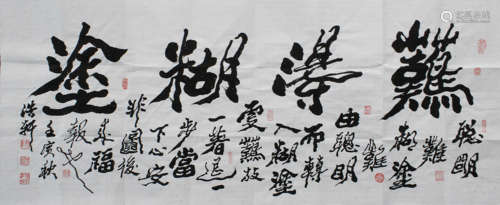 難得糊塗
聪明
難糊塗
難
由聰明
而轉
入糊塗
更難放
一着退一
步當
下心安
非圖後
来福
報也
壬寅秋
浩